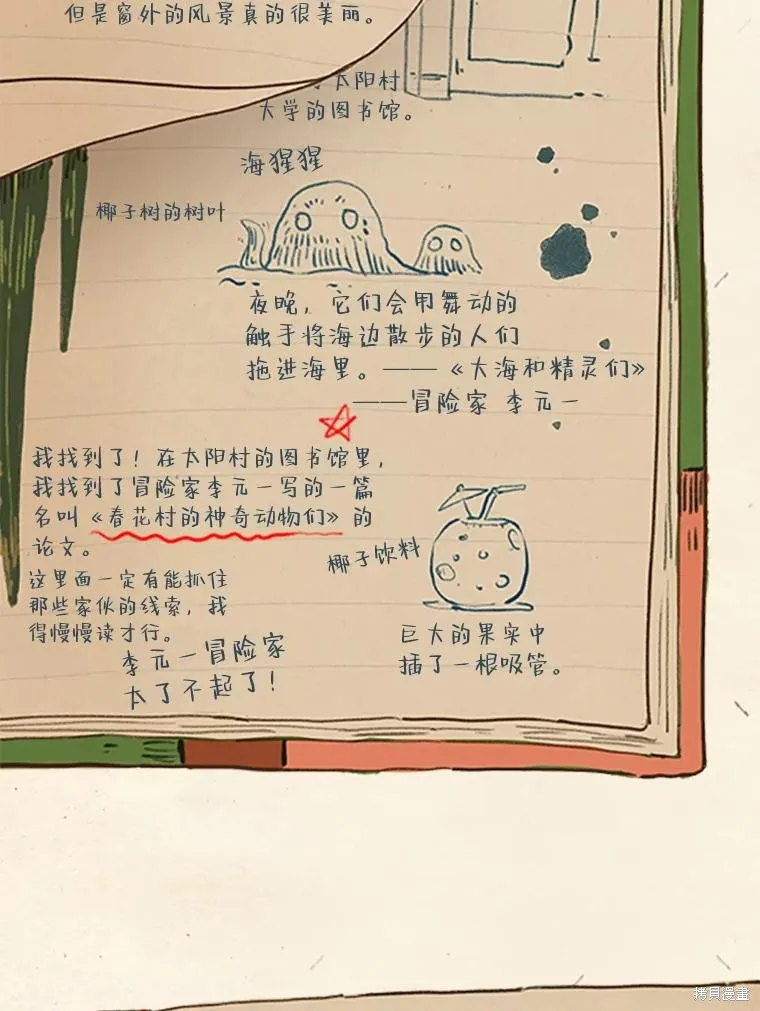 但是窗外的风景真的很美丽。
太阳村
大学的图书馆。
海猩猩
椰子树的树叶
夜晚，它们会用舞动的
触手将海边散步的人们
拖进海里。——《大海和精灵们》
——冒险家 李元一
我找到了！在太阳村的图书馆里，
我找到了冒险家李元一写的一篇
名叫《春花村的神奇动物们》的
论文。
这里面一定有能抓住
那些家伙的线索，我
得慢慢读才行。
李元一冒险家
太了不起了！
椰子饮料
巨大的果实中
插了一根吸管。
拷貝漫畫